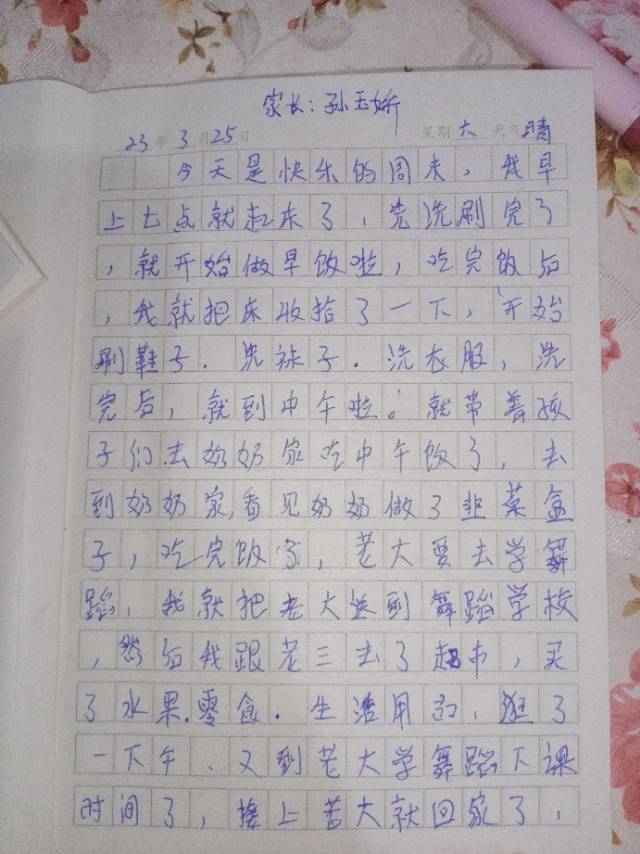 家长：孙玉娇
23年3月25日 星期六 天气晴
今天是快乐的周末，我早
上七点就起床了，先洗刷完了
，就开始做早饭啦，吃完饭后
，我就把床收拾了一下，开始
刷鞋子.洗袜子.洗衣服，洗
完后，就到中午啦。就带着孩
子们去奶奶家吃中午饭了，去
到奶奶家，看见奶奶做了韭菜盒
子，吃完饭了，老大要去学舞
蹈，我就把老大送到舞蹈学校
，然后我跟老三去了超市，买
了水果.零食.生活用品，逛了
一下午、又到老大学舞蹈下课
时间了，接上老大就回家了，